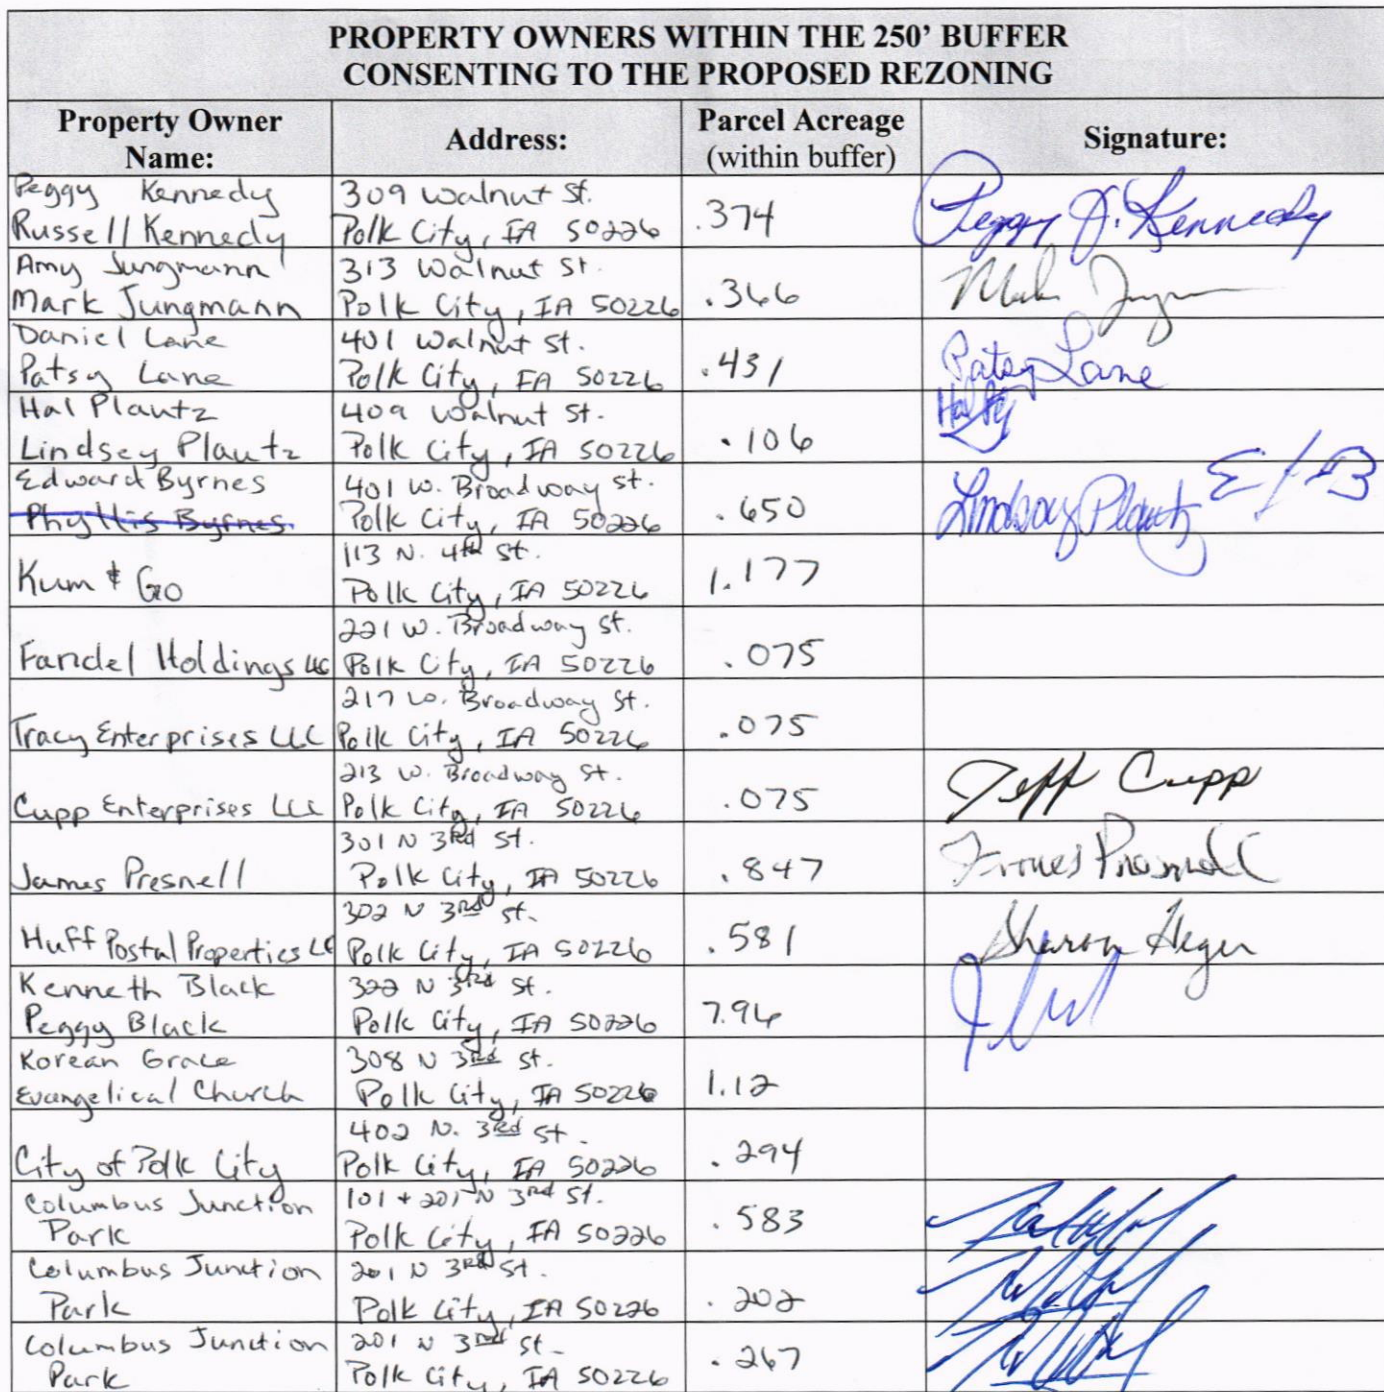 PROPERTY OWNERS WITHIN THE 250' BUFFER
CONSENTING TO THE PROPOSED REZONING
Property Owner
Name:
Address:
Parcel Acreage
(within buffer)
Signature:
Peggy Kennedy
Russell Kennedy
309 Walnut St.
Polk City, IA 50226
.374
Peggy J. Kennedy
Amy Jungmann
Mark Jungmann
313 Walnut St.
Polk City, IA 50226
.366
Daniel Lane
Patsy Lane
401 Walnut St.
Polk City, IA 50226
.431
Patsy Lane
Hal Plautz
Lindsey Plautz
409 Walnut St.
Polk City, IA 50226
.106
Edward Byrnes
Phyllis Byrnes
401 W. Broadway St.
Polk City, IA 50226
.650
Lindsay Plautz
Kum & Go
113 N. 4th St.
Polk City, IA 50226
1.177
Faridel Holdings LLC
221 W. Broadway St.
Polk City, IA 50226
.075
Tracy Enterprises LLC
217 W. Broadway St.
Polk City, IA 50226
.075
Cupp Enterprises LLC
213 W. Broadway St.
Polk City, IA 50226
.075
Jeff Cupp
James Presnell
301 N 3rd St.
Polk City, IA 50226
.847
James Presnell
Huff Postal Properties LC
302 N 3rd St.
Polk City, IA 50226
.581
Sharon Heger
Kenneth Black
Peggy Black
322 N 3rd St.
Polk City, IA 50226
7.96
Korean Grace
Evangelical Church
308 N 3rd St.
Polk City, IA 50226
1.12
City of Polk City
402 N. 3rd St.
Polk City, IA 50226
.294
Columbus Junction
Park
101 + 201 N 3rd St.
Polk City, IA 50226
.583
Columbus Junction
Park
201 N 3rd St.
Polk City, IA 50226
.202
Columbus Junction
Park
201 N 3rd St.
Polk City, IA 50226
.267